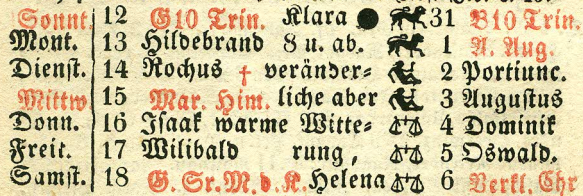 Sonnt. 12 G10 Trin. Klara 31 B10 Trin.
Mont. 13 Hildebrand 8 u. ab. 1 A. Aug.
Dienst. 14 Rochus † veränder= 2 Portiunc.
Mittw. 15 Mar. Him. liche aber 3 Augustus
Donn. 16 Isaak warme Witte= 4 Dominik
Freit. 17 Wilibald rung, 5 Oswald.
Samst. 18 G. Sr. M. d. K. Helena 6 Verkl. Chr